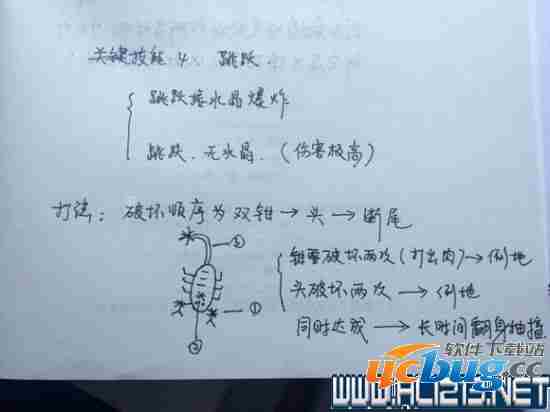 关键技能4 跳跃.
跳跃接水晶爆炸
跳跃.无水晶.(伤害极高)
打法: 破坏顺序为双钳→头→断尾
③
钳要破坏两次(打出肉)→倒地
①
头破坏两次→倒地
②
同时达成→长时间翻身抽搐
ucbug.cc
软件下载站
WWW.ALI213.NET